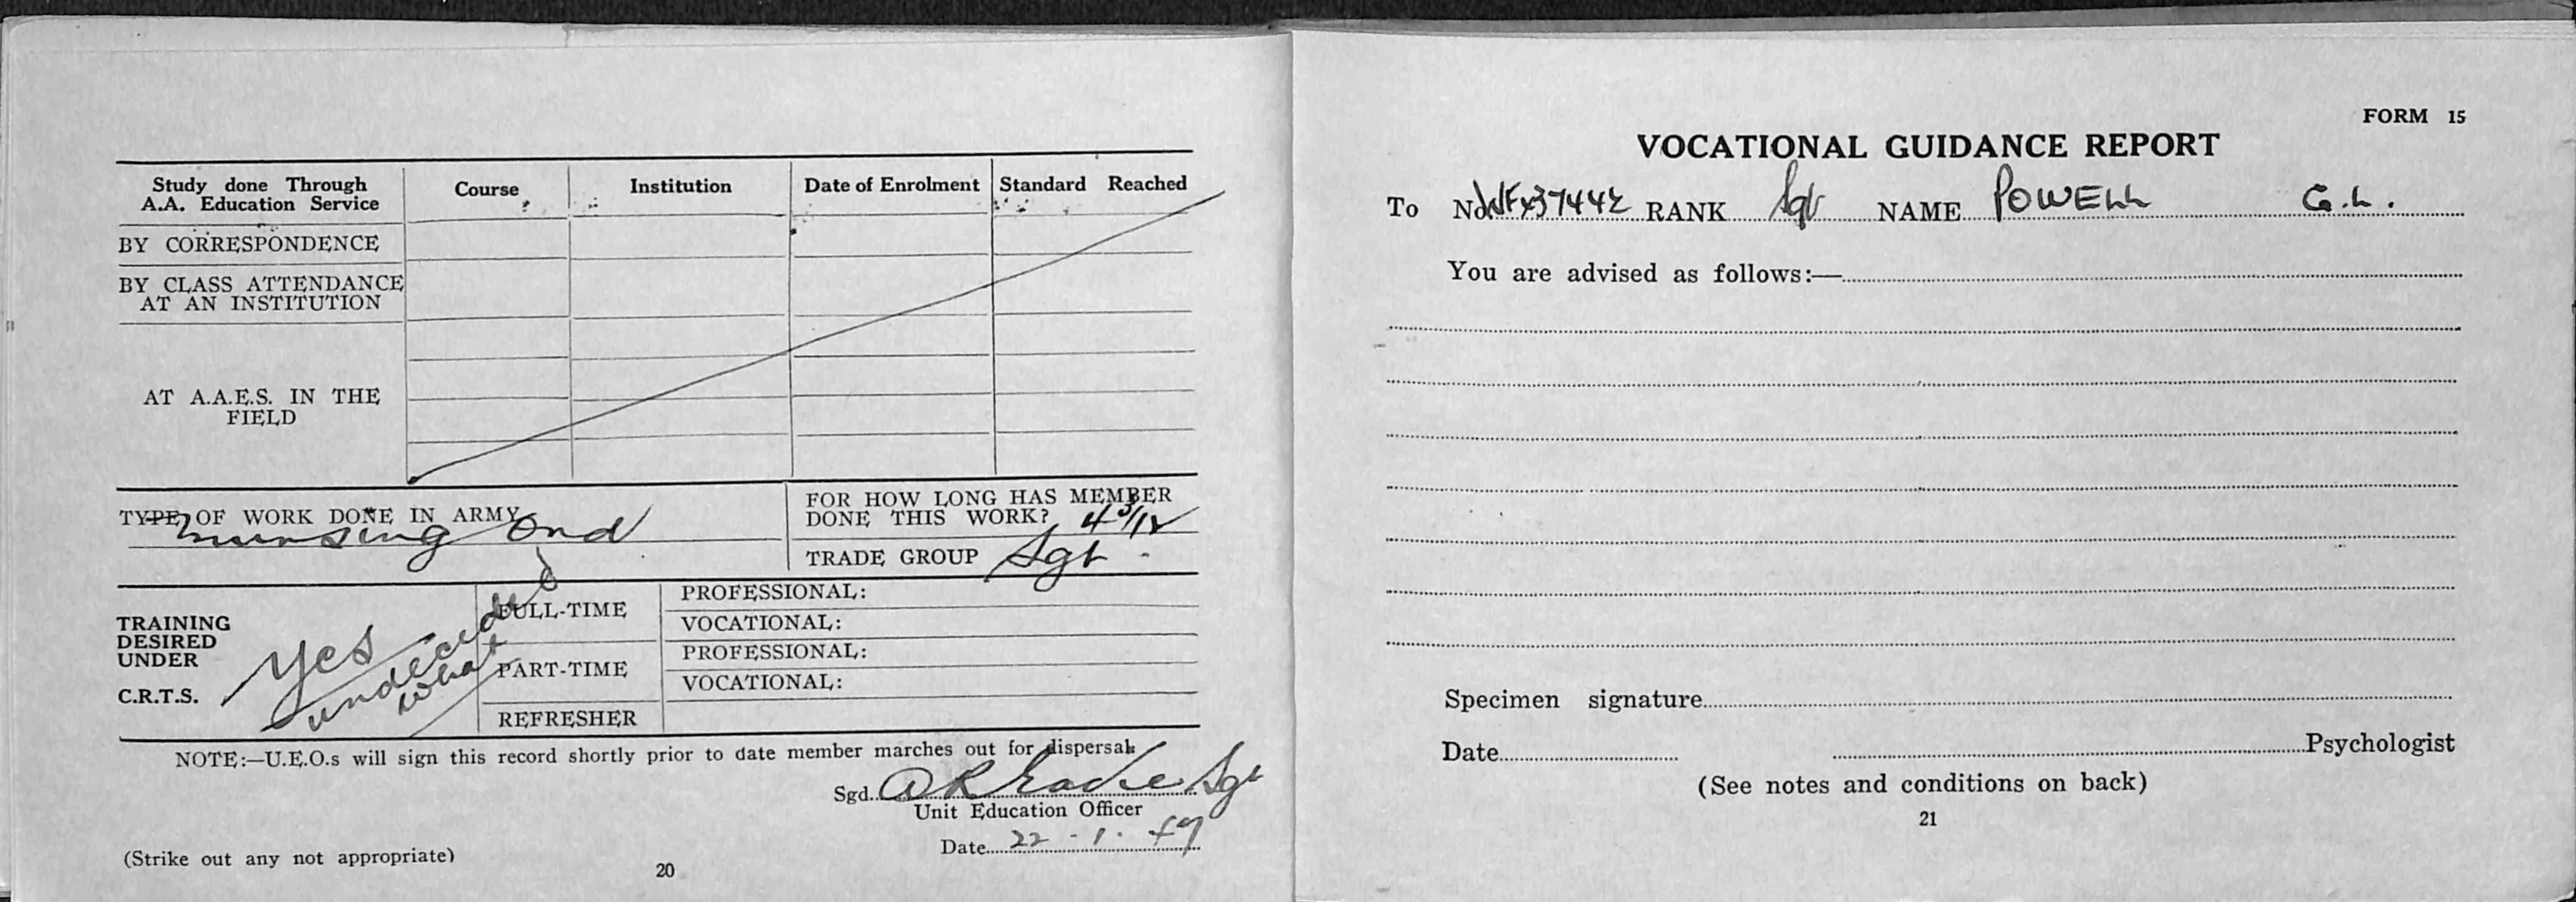 Study done Through
A.A. Education Service
Course
Institution
Date of Enrolment
Standard Reached
BY CORRESPONDENCE
BY CLASS ATTENDANCE
AT AN INSTITUTION
AT A.A.E.S. IN THE
FIELD
TYPE OF WORK DONE IN ARMY
nursing Ord
FOR HOW LONG HAS MEMBER
DONE THIS WORK? 4 3/12
TRADE GROUP Sgt
TRAINING
DESIRED
UNDER
C.R.T.S.
Yes
undecided
what
FULL-TIME
PROFESSIONAL:
VOCATIONAL:
PART-TIME
PROFESSIONAL:
VOCATIONAL:
REFRESHER
NOTE:—U.E.O.s will sign this record shortly prior to date member marches out for dispersal.
Sgd. Sgt
Unit Education Officer
Date 22 - 1 -
(Strike out any not appropriate)
20
FORM 15
VOCATIONAL GUIDANCE REPORT
To No. RANK Sgt NAME POWELL G.L.
You are advised as follows:—
Specimen signature
Date Psychologist
(See notes and conditions on back)
21